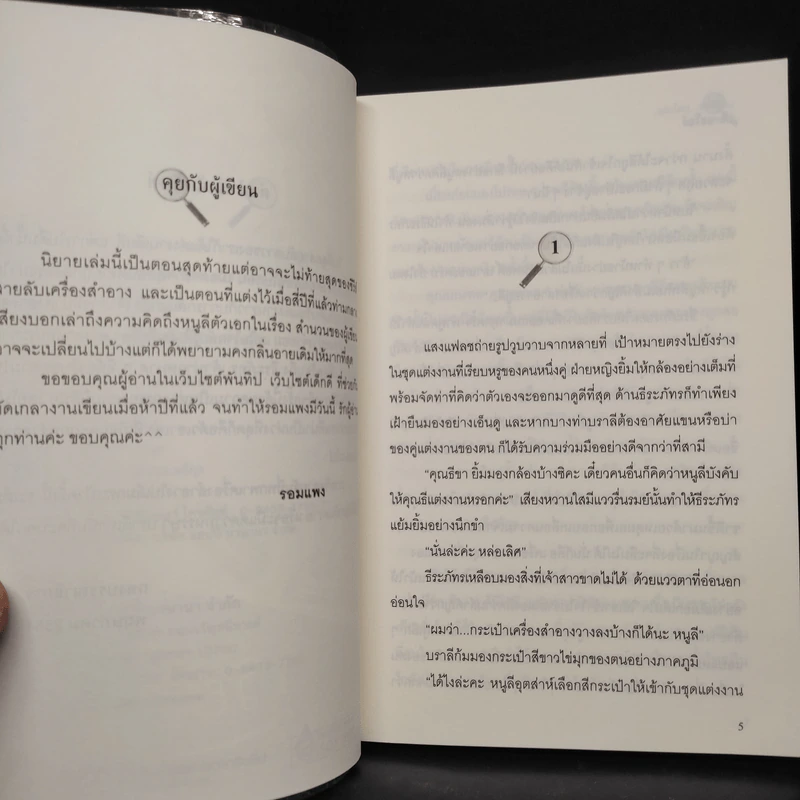 คุยกับผู้เขียน
นิยายเล่มนี้เป็นตอนสุดท้ายแต่อาจจะไม่ท้ายสุดของซีรีย์
สายลับเครื่องสำอาง และเป็นตอนที่แต่งไว้เมื่อสี่ปีที่แล้วท่ามกลาง
เสียงบอกเล่าถึงความคิดถึงหนูลีตัวเอกในเรื่อง สำนวนของผู้เขียน
อาจจะเปลี่ยนไปบ้างแต่ก็ได้พยายามคงกลิ่นอายเดิมให้มากที่สุด
ขอขอบคุณผู้อ่านในเว็บไซต์พันทิป เว็บไซต์เด็กดี ที่ช่วยกัน
ขัดเกลางานเขียนเมื่อห้าปีที่แล้ว จนทำให้รอมแพงมีวันนี้ รักผู้อ่าน
ทุกท่านค่ะ ขอบคุณค่ะ^^
รอมแพง
1
แสงแฟลชถ่ายรูปวูบวาบจากหลายที่ เป้าหมายตรงไปยังร่าง
ในชุดแต่งงานที่เรียบหรูของคนหนึ่งคู่ ฝ่ายหญิงยิ้มให้กล้องอย่างเต็มที่
พร้อมจัดท่าที่คิดว่าตัวเองจะออกมาดูดีที่สุด ด้านธีระภัทรก็ทำเพียง
เฝ้ายืนมองอย่างเอ็นดู และหากบางท่าบราลีต้องอาศัยแขนหรือบ่า
ของคู่แต่งงานของตน ก็ได้รับความร่วมมืออย่างดีจากว่าที่สามี
“คุณธีขา ยิ้มมองกล้องบ้างซิคะ เดี๋ยวคนอื่นก็คิดว่าหนูลีบังคับ
ให้คุณธีแต่งงานหรอกค่ะ” เสียงหวานใสมีแววรื่นรมย์นั้นทำให้ธีระภัทร
แย้มยิ้มอย่างนึกขำ
“นั่นล่ะค่ะ หล่อเลิศ”
ธีระภัทรเหลือบมองสิ่งที่เจ้าสาวขาดไม่ได้ ด้วยแววตาที่อ่อนอก
อ่อนใจ
“ผมว่า...กระเป๋าเครื่องสำอางวางลงบ้างก็ได้นะ หนูลี”
บราลีก้มมองกระเป๋าสีขาวไข่มุกของตนอย่างภาคภูมิ
“ได้ไงล่ะคะ หนูลีอุตส่าห์เลือกสีกระเป๋าให้เข้ากับชุดแต่งงาน
5